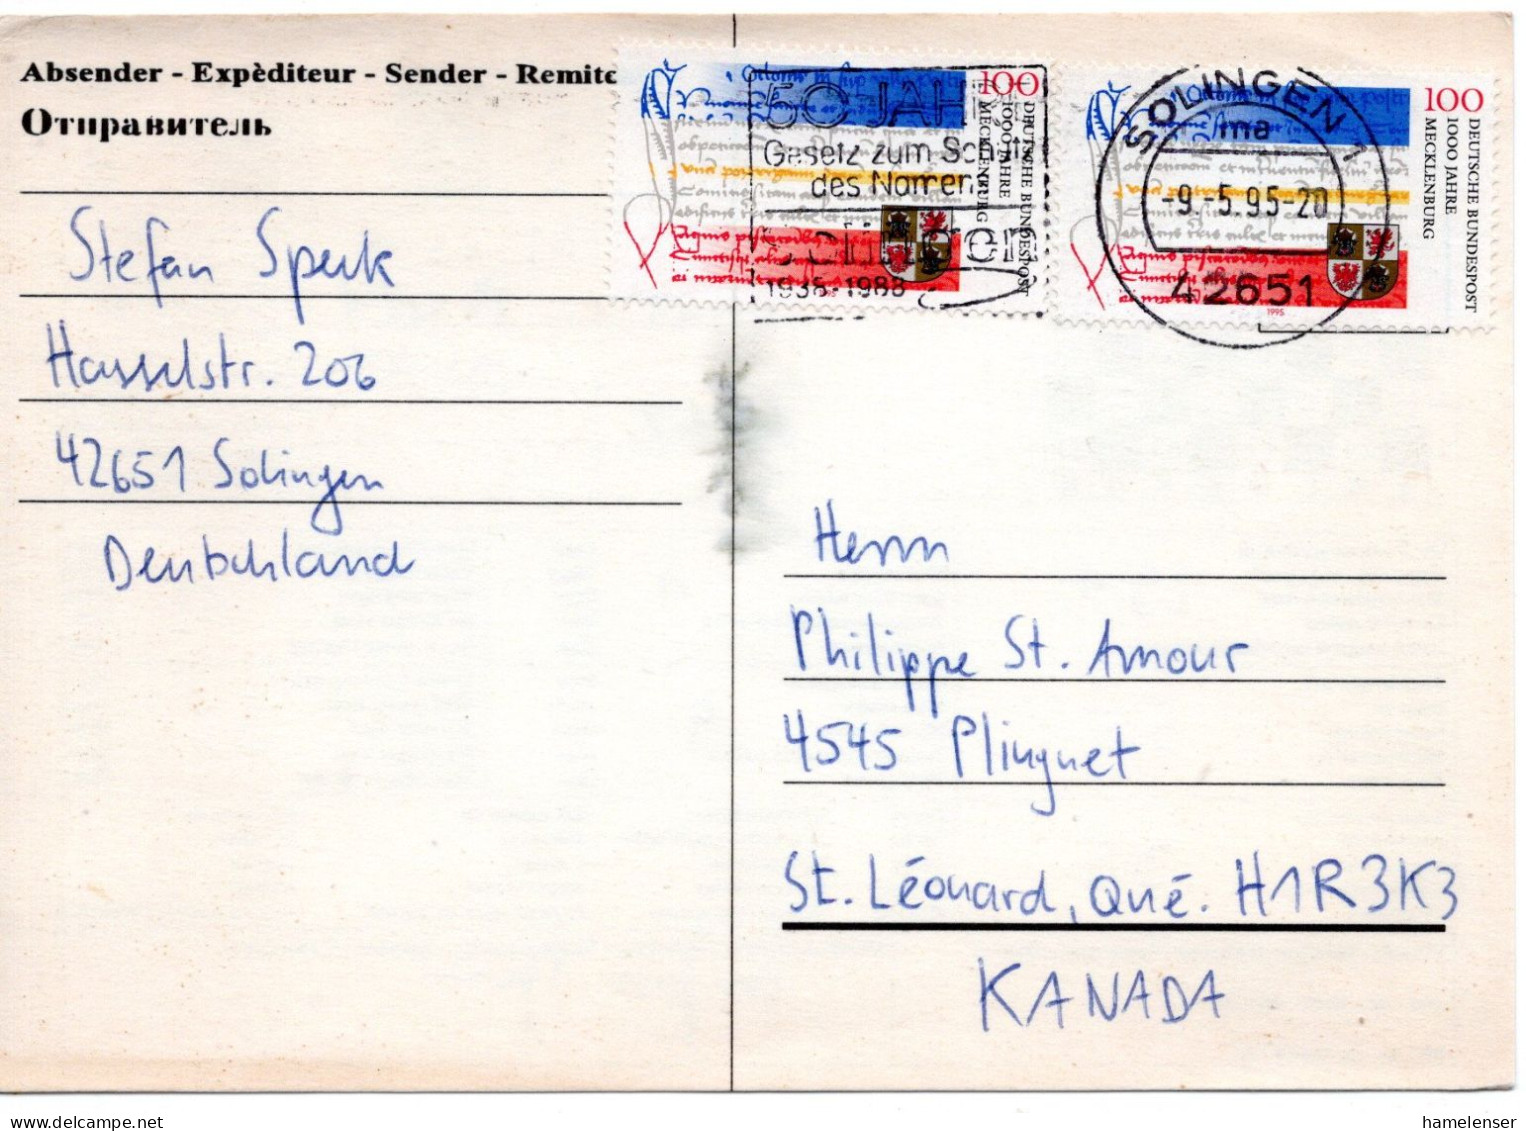 Absender - Expèditeur - Sender - Remitt
Отправитель
Stefan Spenk
Hasselstr. 206
42651 Solingen
Deutschland
100
DEUTSCHE BUNDESPOST
1000 JAHRE
MECKLENBURG
50 JAHRE
Gesetz zum Schutz
des Namens
Solingen
1938-1988
100
DEUTSCHE BUNDESPOST
1000 JAHRE
MECKLENBURG
1995
SOLINGEN 1
ma
-9.-5.95-20
42651
Herrn
Philippe St. Amour
4545 Plinguet
St. Léonard, Qué. H1R3K3
KANADA
delcampe.net
hamelenser